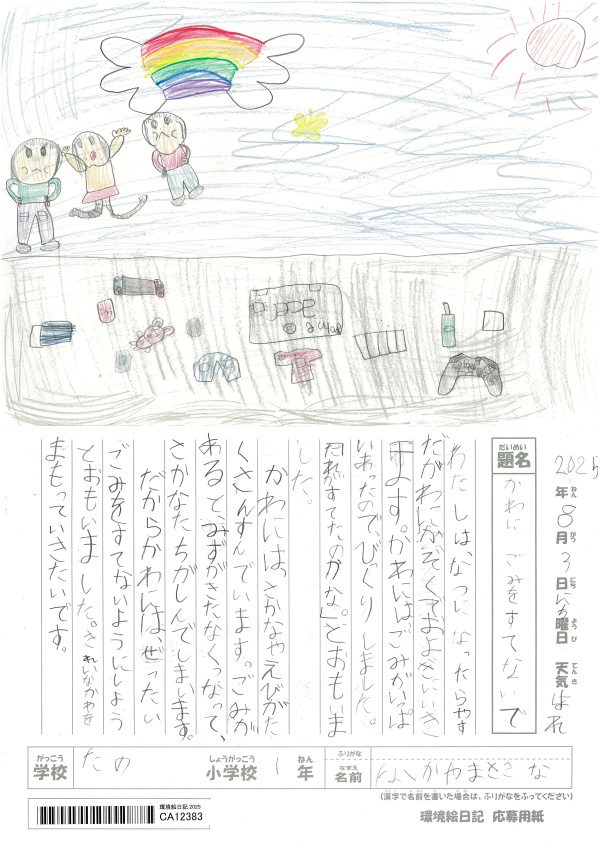 2025年ねん8月がつ3日にちにち曜日ようび 天気てんきはれ
題名だいめい かわに ごみをすてないで
わたしは、なつになったらやす
だがわにかぞくでおよぎにいき
ます。かわにはごみがいっぱ
いあったので、びっくりしました。
「だれがすてたのかな。」とおもいま
した。
かわには、さかなやえびがた
くさんすんでいます。ごみが
あると、みずがきたなくなって、
さかなたちがしんでしまいます。
だからかわには、ぜったい
ごみをすてないようにしよう
とおもいました。きれいなかわを
まもっていきたいです。
学校がっこう たの 小学校しょうがっこう 1 年ねん
ふりがな
名前なまえ
(漢字で名前を書いた場合は、ふりがなをふってください)
環境絵日記 応募用紙
環境絵日記 2025
CA12383